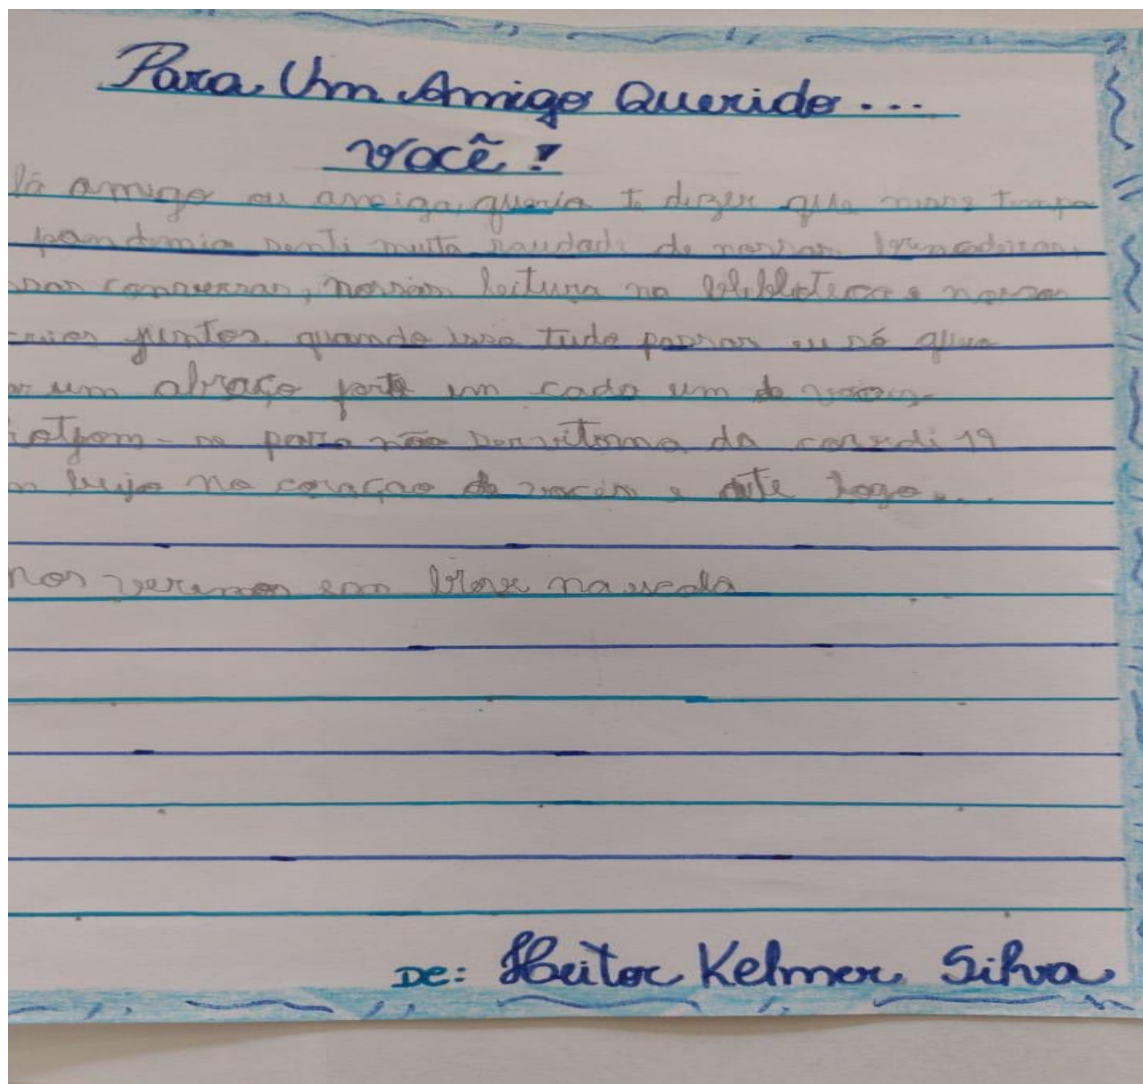 Para Um Amigo Querido...
você!
lá amigo ou amiga, queria te dizer que nesse tempo
pandemia senti muita saudade de nossas brincadeiras,
ssas conversas, nossas leitura na e nossos
juntos. quando isso tudo passar eu só quero
ar um abraço forte em cada um de voceis
se para não ser da 19
m beijo no coração de vocês e até logo...
nos veremos em breve na escola
De: Heitor Kelmer Silva